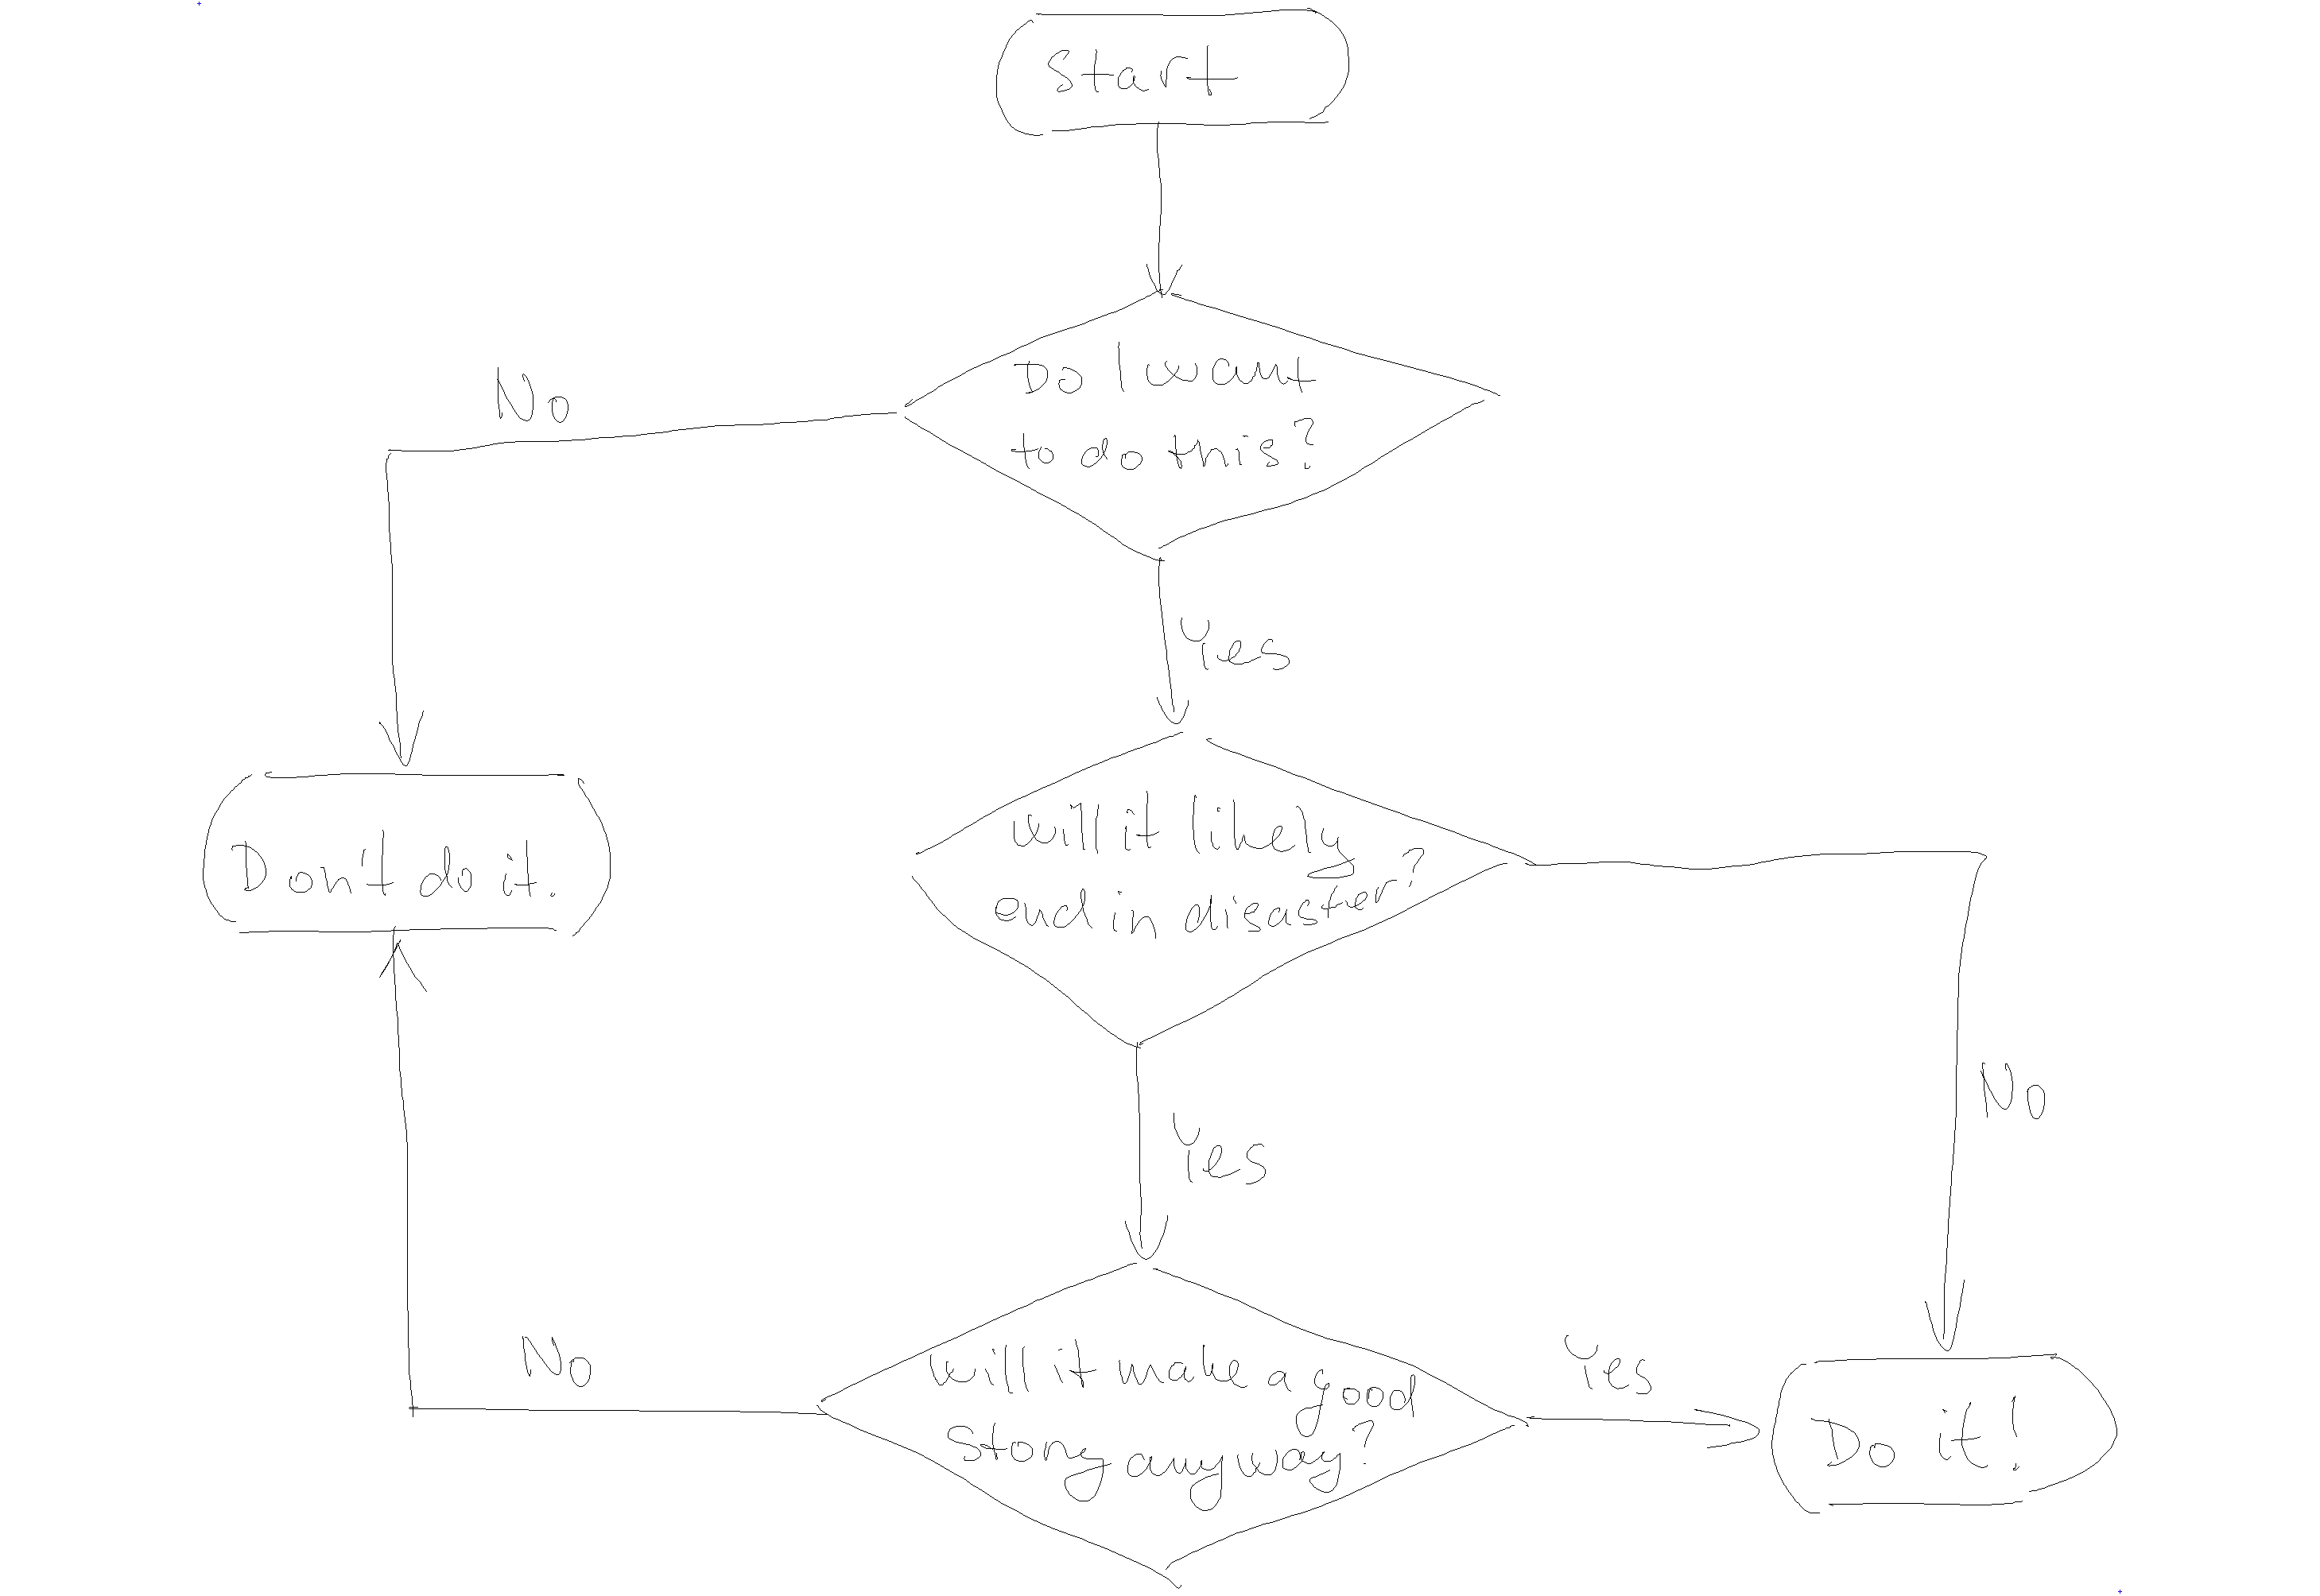 Start
Do I want
to do this?
No
Yes
Don't do it.
will it likely
end in disaster?
No
Yes
will it make a good
story anyway?
No
Yes
Do it!